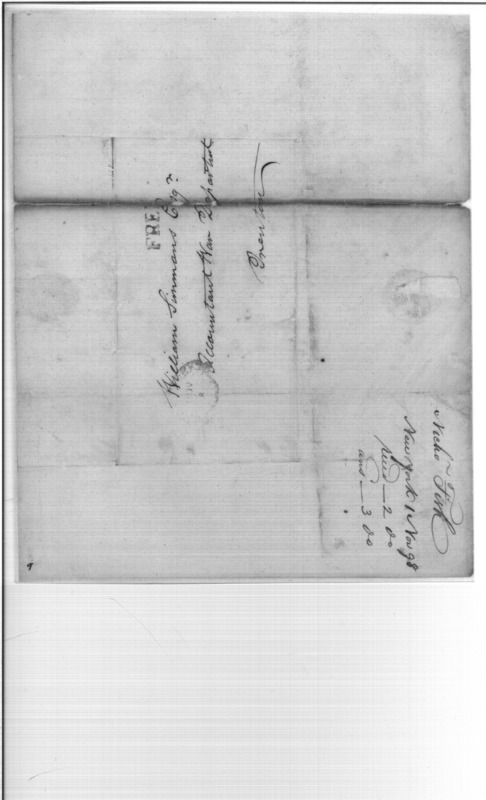 FRE
William Simmons Esqr.
Accountant War Departmt
Trenton
Nichs Fish
New York 1 Nov 98
Recd — 2 do
ans — 3 do